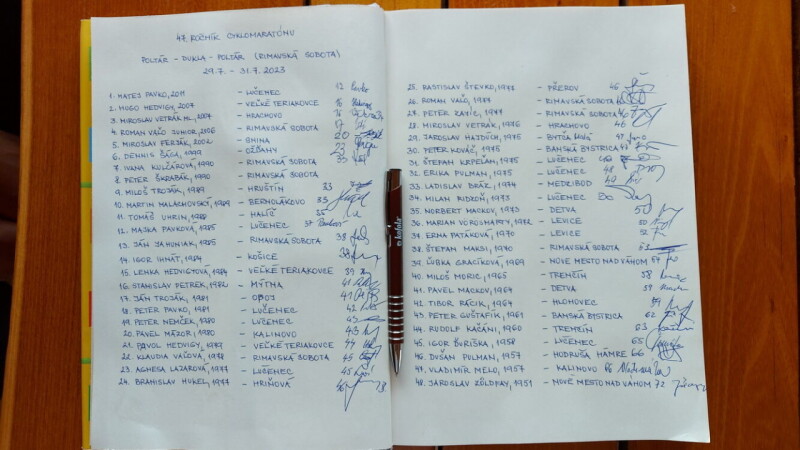 47. ROČNÍK CYKLOMARATÓNU
POLTÁR - DUKLA - POLTÁR (RIMAVSKÁ SOBOTA)
29.7. - 31.7. 2023
1. MATEJ PAVKO, 2011 - LUČENEC 12
2. HUGO HEDVIGY, 2007 - VEĽKÉ TERIAKOVCE 16
3. MIROSLAV VETRÁK ML., 2007 - HRACHOVO 16
4. ROMAN VAĽO JUNIOR, 2006 - RIMAVSKÁ SOBOTA 17
5. MIROSLAV FERJÁK, 2002 - CHINA 20
6. DENNIS ŠÁGA, 1999 - OŽĎANY 23
7. IVANA KULŽÁROVÁ, 1990 - RIMAVSKÁ SOBOTA 33
8. PETER ŠKRABÁK, 1990 - RIMAVSKÁ SOBOTA
9. MILOŠ TROJÁK, 1989 - HRUŠTÍN 33
10. MARTIN MALACHOVSKÝ, 1989 - BERNOLÁKOVO 33
11. TOMÁŠ UHRIN, - HALIČ
12. MAJKA PAVKOVÁ, 1985 - LUČENEC 37
13. JÁN JAHUNIAK, 1985 - RIMAVSKÁ SOBOTA 38
14. IGOR IHNÁT, 1984 - KOŠICE 38
15. LENKA HEDVIGYOVÁ, 1984 - VEĽKÉ TERIAKOVCE 39
16. STANISLAV PETRÉK, 1982 - MÝTNA 41
17. JÁN TROJÁK, 1981 - 41
18. PETER PAVKO, 1981 - LUČENEC 42
19. PETER NEMČEK, 1980 - LUČENEC 43
20. PAVEL MÁZOR, 1980 - KALINOVO 43
21. PAVOL HEDVIGY, 1979 - VEĽKÉ TERIAKOVCE 44
22. KLAUDIA VAĽOVÁ, 1978 - RIMAVSKÁ SOBOTA 45
23. AGNESA LAZAROVÁ, 1977 - LUČENEC 45
24. BRANISLAV HUKEL, 1977 - HRIŇOVÁ 46
25. RASTISLAV ŠTEVKO, 1977 - PŘEROV 46
26. ROMAN VAĽO, 1977 - RIMAVSKÁ SOBOTA
27. PETER KAVIC, 1977 - RIMAVSKÁ SOBOTA 46
28. MIROSLAV VETRÁK, 1976 - HRACHOVO 46
29. JAROSLAV HAJDICH, 1975 - BYTČA 47
30. PETER KOVÁČ, 1975 - BANSKÁ BYSTRICA 48
31. ŠTEFAN KRPEĽAN, 1975 - LUČENEC
32. ERIKA PULMAN, 1975 - LUČENEC 48
33. LADISLAV BRÁZ, 1974 - MEDZIBROD 49
34. MILAN RIDZOŇ, 1973 - LUČENEC 50
35. NORBERT MACKOV, 1973 - DETVA 50
36. MARIAN VÖRÖSMARTY, 1972 - LEVICE 50
37. ERNA PATÁKOVÁ, 1970 - LEVICE 52
38. ŠTEFAN MAKSI, 1970 - RIMAVSKÁ SOBOTA 53
39. ĽUBKA GRACIKOVÁ, 1969 - NOVÉ MESTO NAD VÁHOM 54
40. MILOŠ MORIC, 1965 - TRENČÍN 58
41. PAVEL MACKOV, 1964 - DETVA 59
42. TIBOR RÁCIK, 1964 - HLOHOVEC 59
43. PETER GUŠTAFIK, 1961 - BANSKÁ BYSTRICA 62
44. RUDOLF KAČÁNI, 1960 - TRENČÍN 63
45. IGOR BURIŠKA, 1958 - LUČENEC 65
46. DUŠAN PULMAN, 1957 - HODRUŠA HÁMRE 66
47. VLADIMÍR MELO, 1957 - KALINOVO 66
48. JAROSLAV ZÖLDPAY, 1951 - NOVÉ MESTO NAD VÁHOM 72